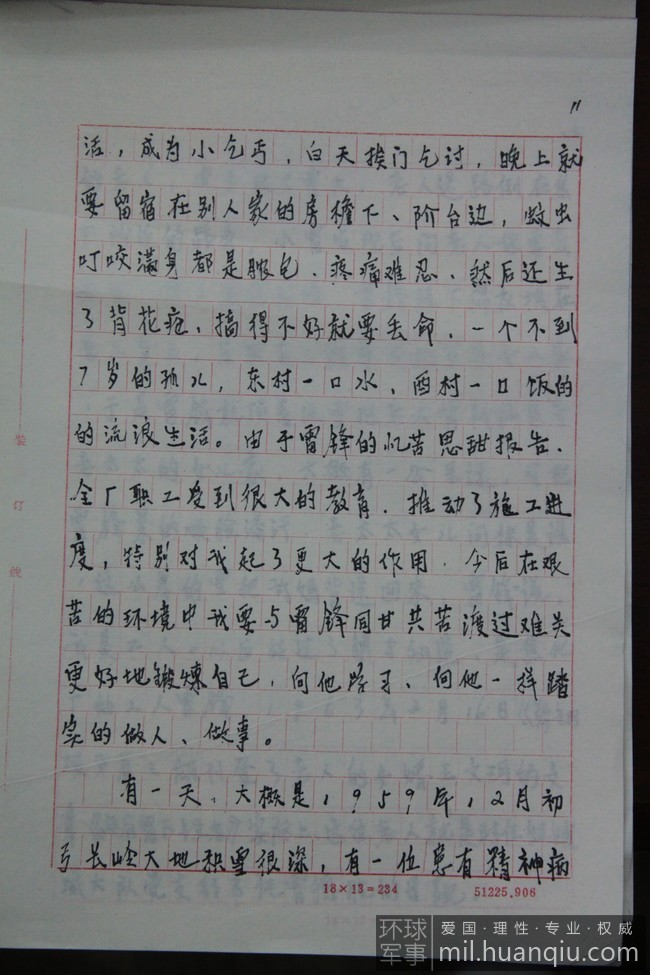 11
活，成为小乞丐，白天挨门乞讨，晚上就
要留宿在别人家的房檐下、阶台边，蚊虫
叮咬满身都是脓包、疼痛难忍、然后还生
了背花疮、搞得不好就要丢命，一个不到
7岁的孤儿，东村一口水、西村一口饭的
的流浪生活。由于雷锋的忆苦思甜报告、
全厂职工受到很大的教育，推动了施工进
度，特别对我起了更大的作用，今后在艰
苦的环境中我要与雷锋同甘共苦渡过难关
更好地锻炼自己，向他学习、向他一样踏
实的做人、做事。
有一天、大概是1959年12月初
弓长岭大地积雪很深，有一位患有精神病
18×13=234
51225.906
装订线
环球军事
爱国·理性·专业·权威
mil.huanqiu.com